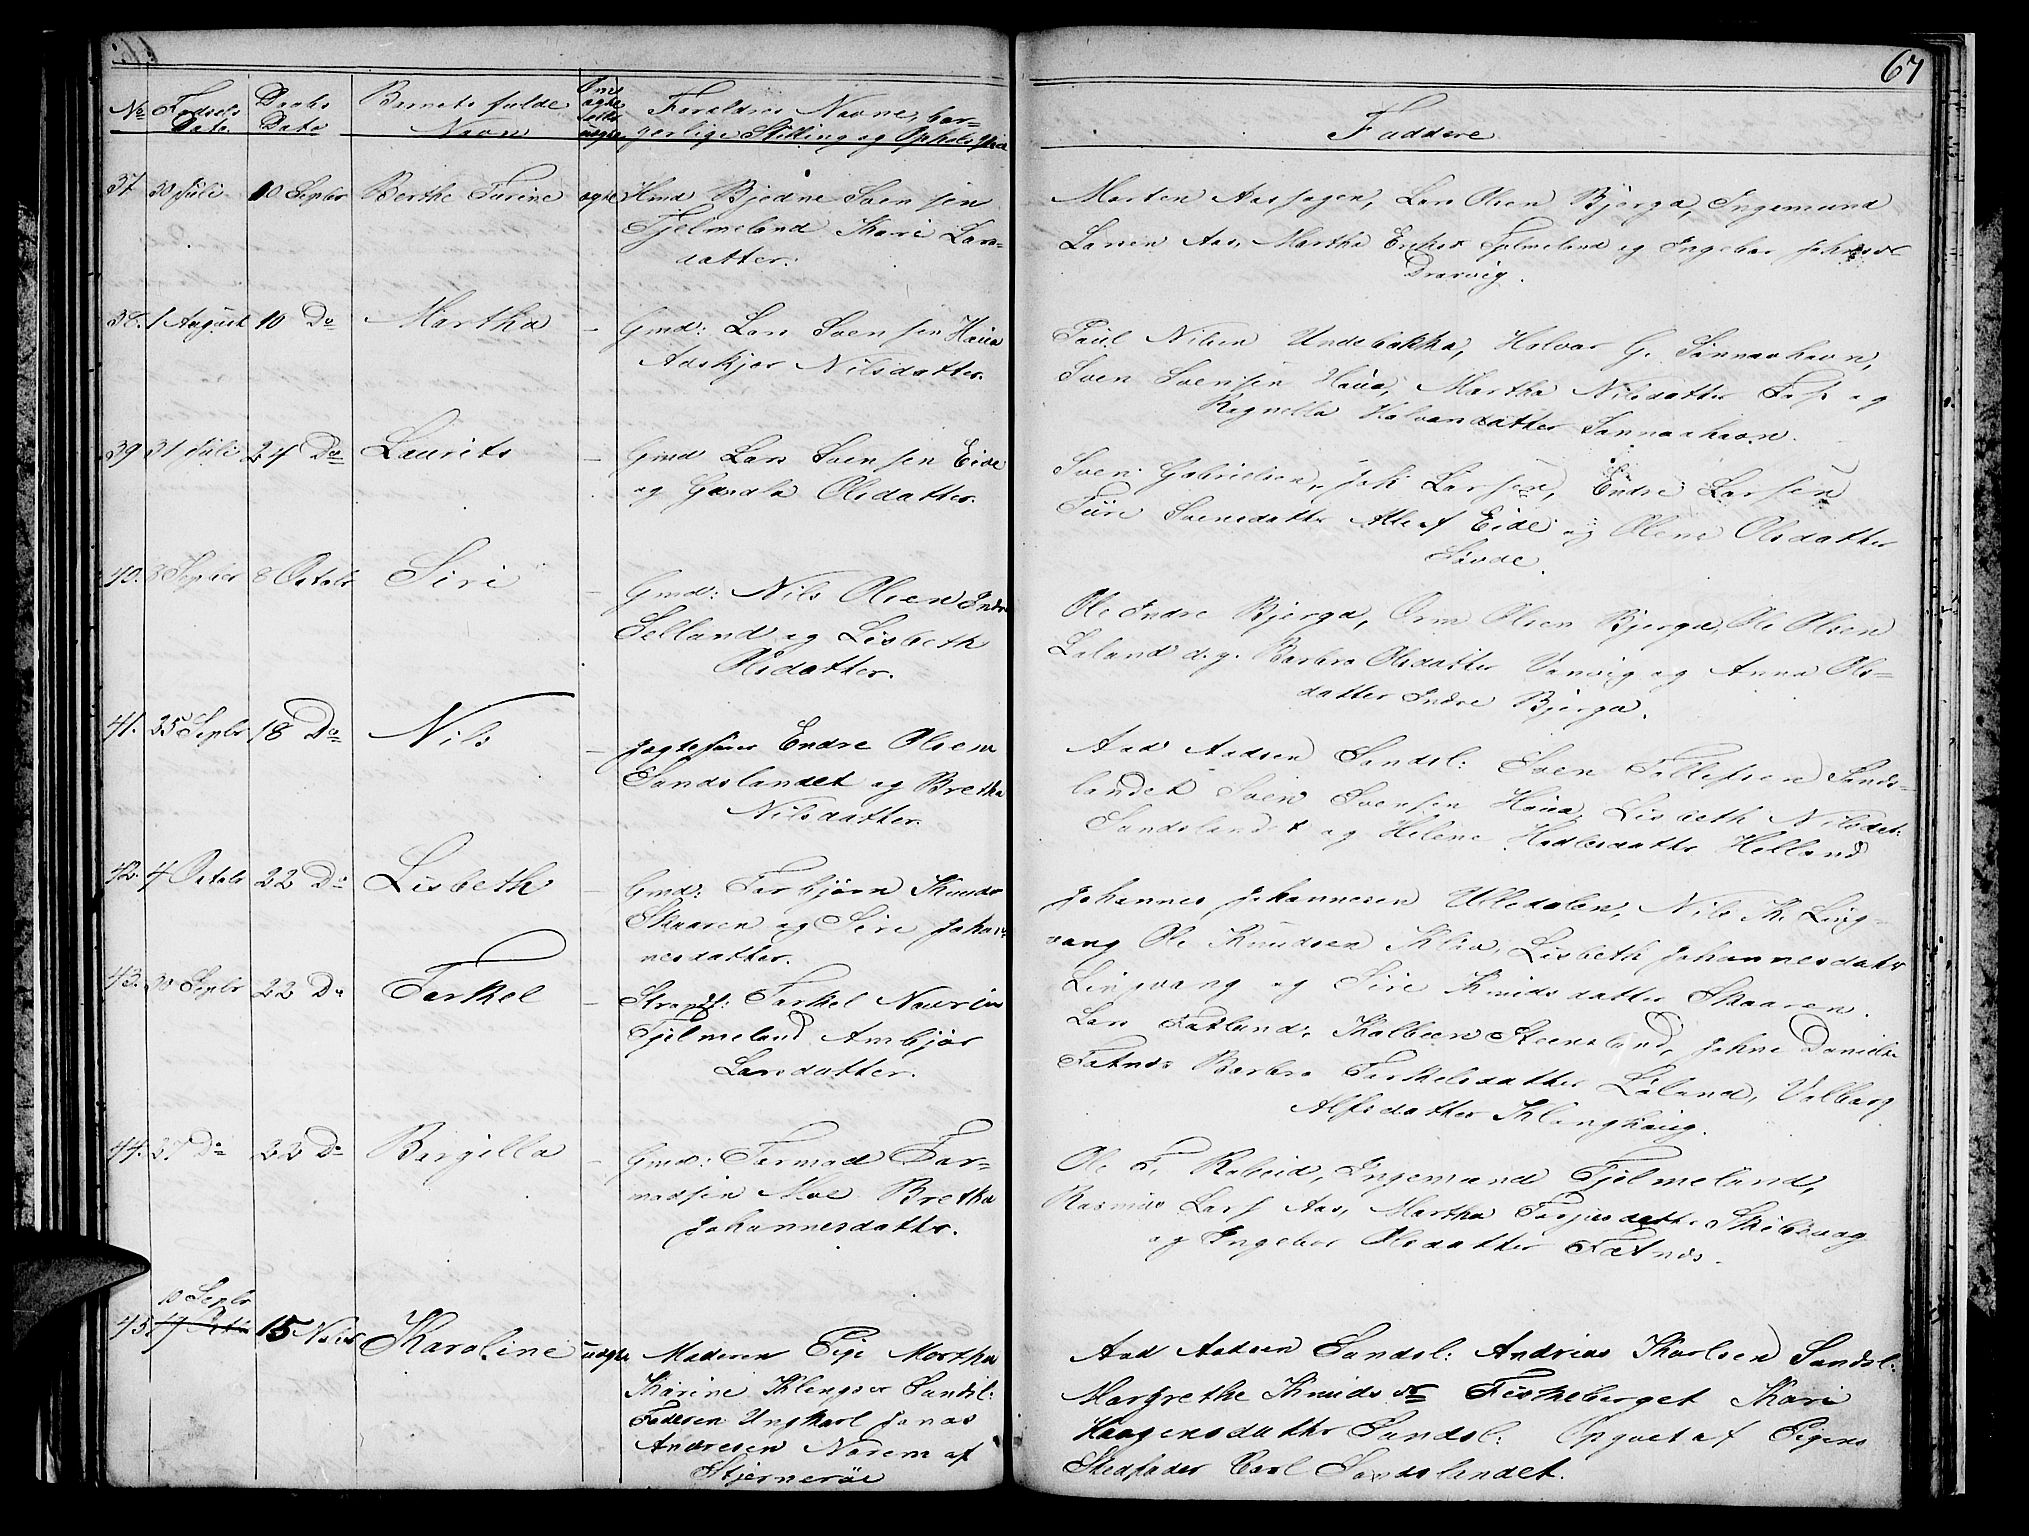 67
No Fødsels Date
Daabs Date
Barnets fulde Navn
Om ægte eller uægte
Forældres Navne, bor-
gerlige Stilling og Opholdssted
Faddere
37. 30 Juli 10 Septbr Berthe Turine ægte Hmd Bjedne Svensen
Fjelmeland Kari Lars-
datter.
Morten Aashagen, Lars Olsen Bjerga, Ingemund
Larsen Aas, Martha Eriksd Fjelmeland og Ingebor
38. 1 August 10 Do Martha — Gmd: Lars Svensen Haua
Nilsdatter.
Paul Nilsen Undebakka, Halvar G. Sannaahavn,
Sven Svensen Haua, Martha Nilsdatter og
Regnella Halvarsdatter Sannaahavn.
39 31 Juli 24 Do Laurits — Gmd Lars Svensen Eide
og Gundla Olsdatter.
Sven Gabrielsen, Jak Larsen, Endre Larsen
Svensdatter Alle af Eide og Olene Olsdatter
Søvde.
40. 8 Septbr 8 Octobr Siri — Gmd: Nils Olsen Indre
Selland og Lisbeth
Olsdatter.
Ole Indre Bjerga, Orm Olsen Bjerga, Ole Olsen
Laland d. y. Barbra Olsdatter Vanvig og Anna Ols-
datter Indre Bjerga.
41. 25 Septbr 18 Do Nils — Jagtefører Endre Olsen
Sandslandet og Bretha
Nilsdatter.
Aad Aadsen Sandsl: Sven Tollefsen Sands-
landet Sven Svensen Haua, Lisbeth Nilsdat.
Sandslandet og Helene Hadlesdattr Helland
42. 4 Octobr 22 Do Lisbeth — Gmd: Torbjørn Knuds
Skaaren og Siri Johan-
nesdatter.
Johannes Johannesen Ulledalen, Nils K. Ling-
vang Ole Knudsen Klia, Lisbeth Johannesdatr
Lingvang og Siri Knudsdatter Skaaren.
43. 30 Septbr 22 Do Torkel — Strands: Torkel
Fjelmeland Ambjør
Larsdatter.
Lars Fatland, Kolbeen Steensland, Johne Daniels
Fatnes Barbra Torkelsdatter Laland, Valborg
Alfsdatter Klunghaug.
44. 27 Do 22 Do Bergilla — Gmd: Tormod Tor-
modsen Moe Bretha
Johannesdattr.
Ole T. Ingemund Fjelmeland,
Rasmus Lars Aas, Martha Skibevag
og Ingebor Olsdatter Fatnes.
10 Septbr
45 15 Novbr Karoline uægte Moderen Pige Martha
Karine Klengsd Sandsl:
Faderen Ungkarl Jonas
Andresen Norem af
Stjernerøe
Aad Aadsen Sandsl: Andrias Karlsen Sandsl:
Margrethe Knudsdr Fiskeberget Kari
Haagensdattr Sandsl: Opgivet af Pigens
Stedfader Carl Sandslandet.